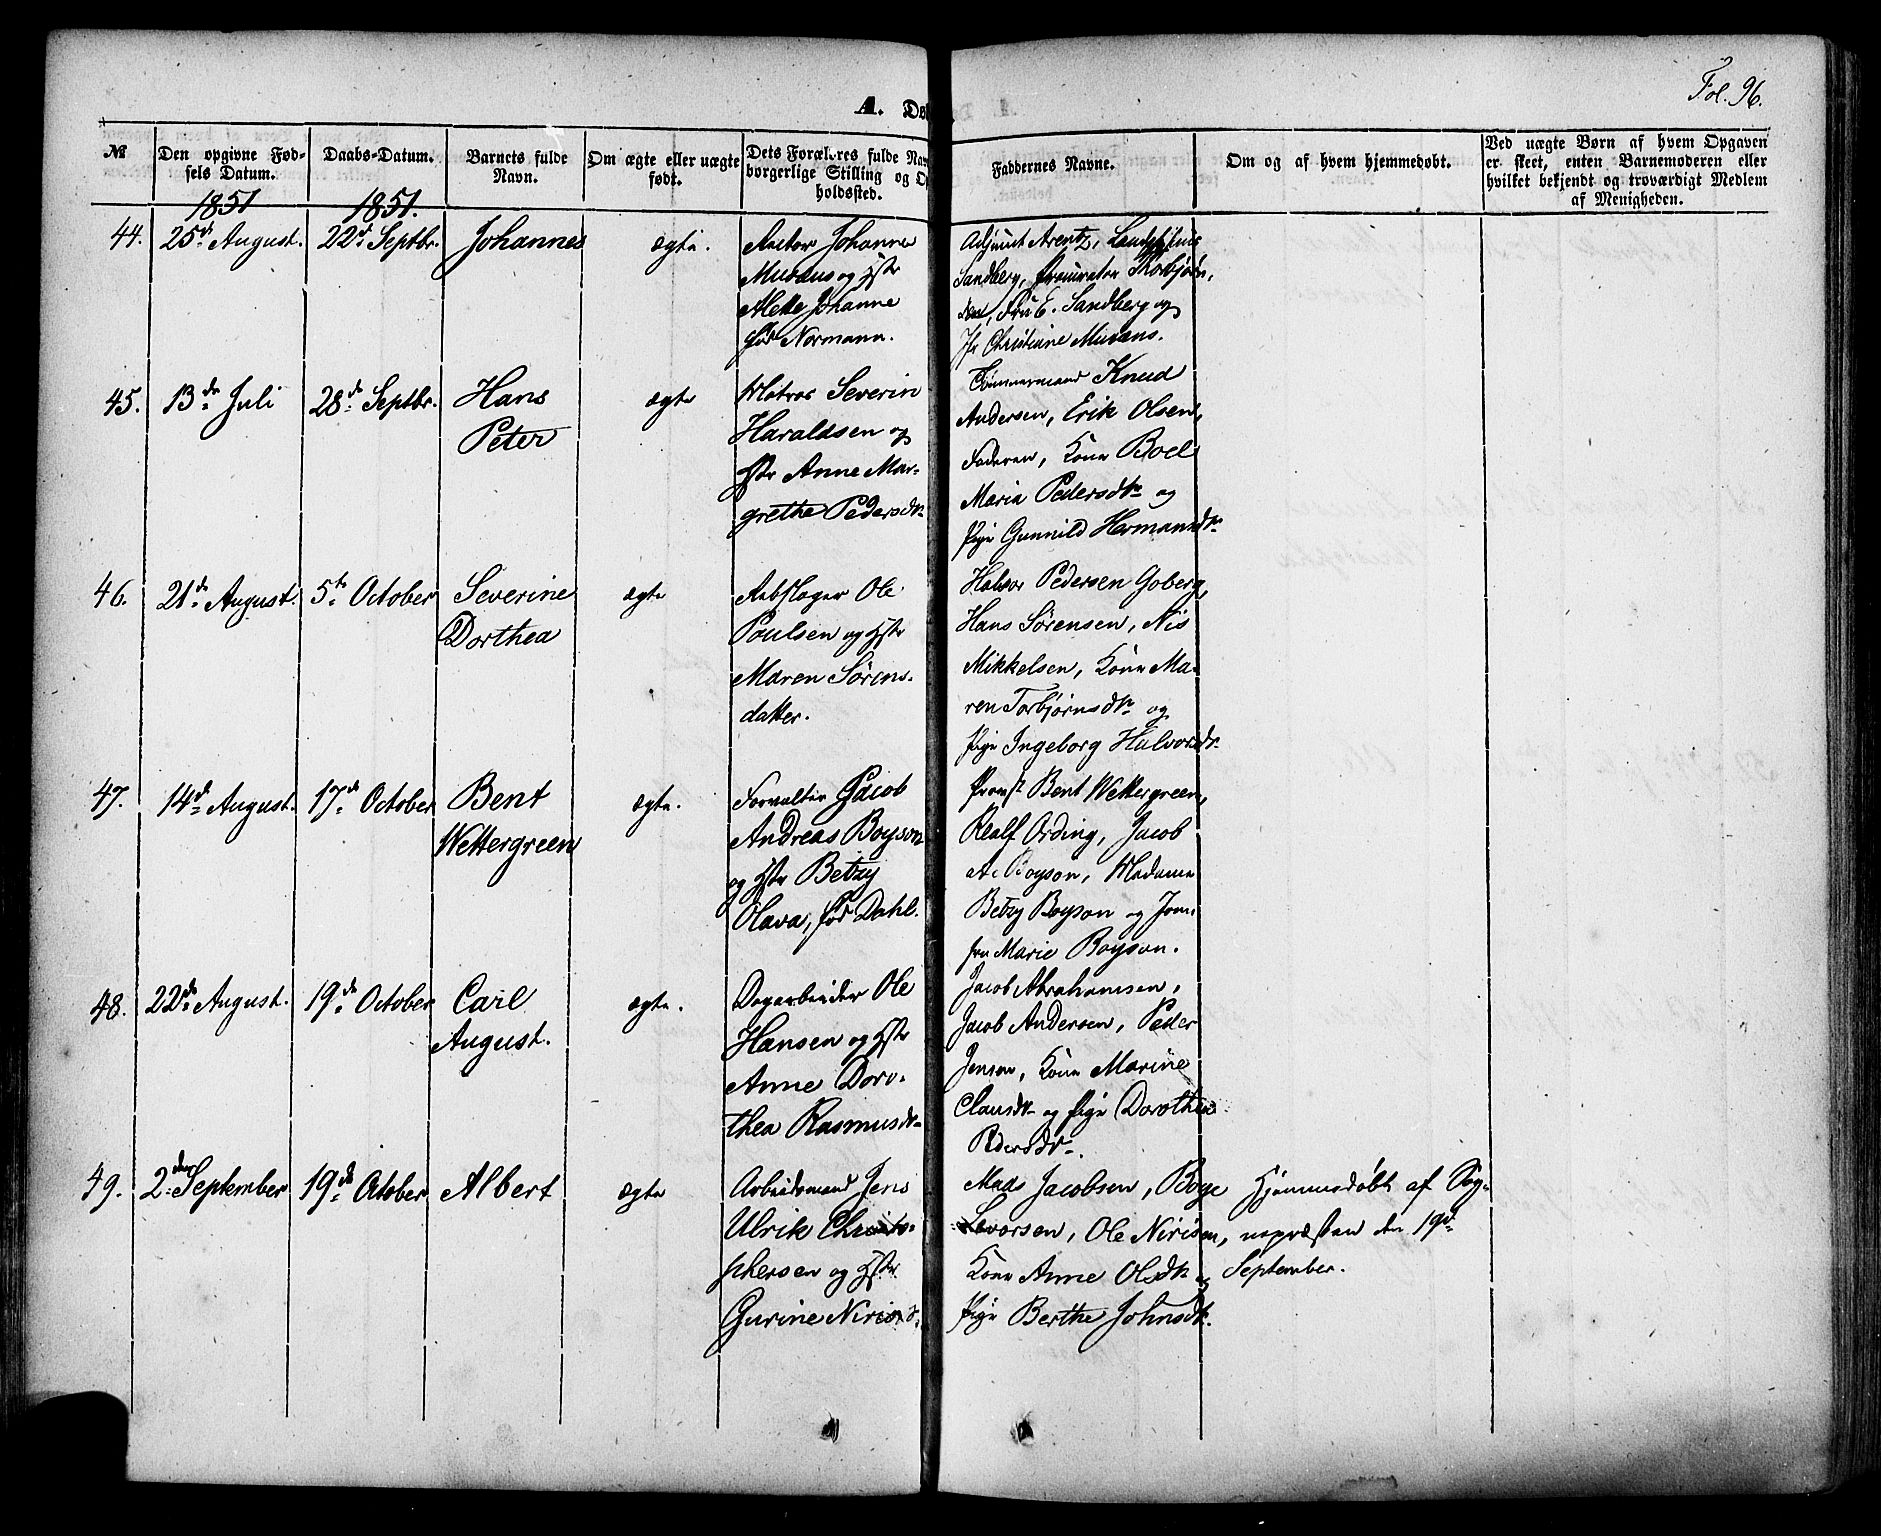 Fol. 96.
A. Dø
№
Den opgivne Fød-
sels Datum.
Daabs-Datum.
Barnets fulde
Navn.
Om ægte eller uægte
født.
Dets Forældres fulde Nav
borgerlige Stilling og Op
holdssted.
Faddernes Navne.
Om og af hvem hjemmedøbt.
Ved uægte Børn af hvem Opgaven
er skeet, enten Barnemoderen eller
hvilket bekjendt og troværdigt Medlem
af Menigheden.
1851
1851.
44.
25de August.
22de Septbr.
Johannes
ægte.
Rector Johannes
Musæus og Hstr
Mette Johanne
fød Normann.
Adjunct Arentz,
Sandberg, Procurator Thorbjørn,
Fru E. Sandberg og
Jfr Christiane Musæus.
45.
13de Juli
28de Septbr.
Hans
Peter
ægte
Matros Severin
Haraldsen og
Hstr Anne Mar-
grethe Pedersdtr
Tømmermand Knud
Andersen, Erik Olsen,
Faderen, Kone Boel
Maria Pedersdtr og
Pige Gunnild Hermansdtr
46.
21de August.
5te October
Severine
Dorthea
ægte
Rebslager Ole
Poulsen og Hstr
Maren Sørens-
datter.
Halvor Pedersen Goberg,
Hans Sørensen, Nis
Mikkelsen, Kone Ma-
ren Torbjørnsdtr og
Pige Ingeborg Halvorsdtr
47.
14de August.
17de October
Bent
Wettergreen
ægte.
Forvalter Jacob
Andreas Boyson
og Hstr Betzy
Olava, fød Dahl.
Provst Bent Wettergreen,
Realf Ording, Jacob
A. Boyson, Madame
Betzy Boyson og Jom-
fru Marie Boyson.
48.
22de August.
19de October
Carl
August.
ægte.
Dagarbeider Ole
Hansen og Hstr
Anne Doro-
thea Rasmusdtr
Jacob Abrahamsen,
Jacob Andersen, Peder
Jensen, Kone Marine
Clausdtr og Pige Dorothea
Pedersdtr.
49.
2den September
19de October
Albert
ægte
Arbeidsmand Jens
Ulrik Christo-
phersen og Hstr
Gurine Niris
Mads Jacobsen, Boye
Levorsen, Ole Nirisen,
Kone Anne Olsdtr og
Pige Berthe Johnsdtr.
Hjemmedøbt af Sog-
nepræsten den 19de
September.